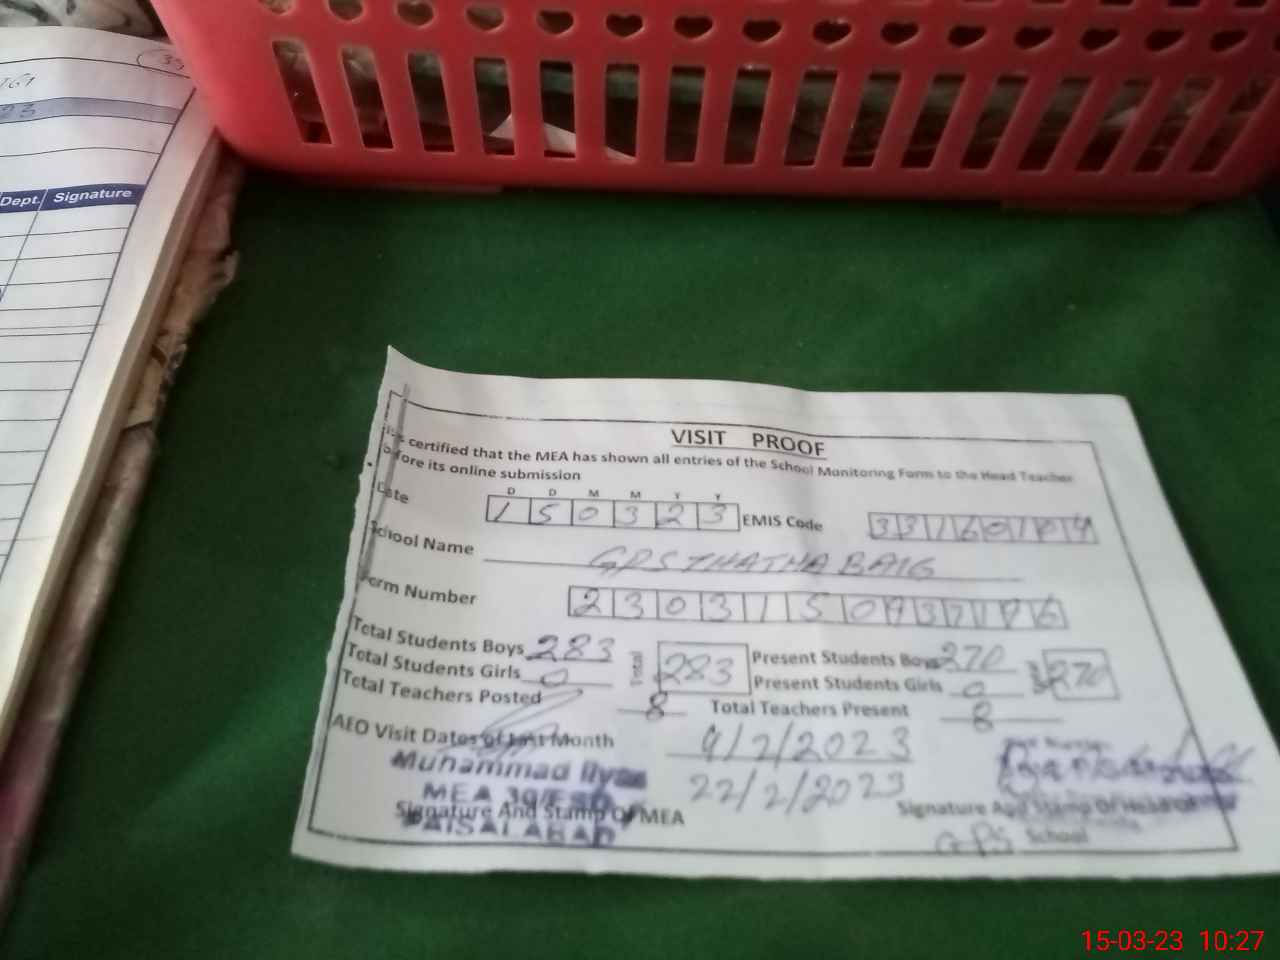 Dept. Signature
VISIT PROOF
certified that the MEA has shown all entries of the School Monitoring Form to the Head Teacher
before its online submission
D D M M Y Y
Date 1 5 0 3 2 3 EMIS Code
School Name GPS THATHA BAIG
Form Number
Total Students Boys 283 Total 283 Present Students Boys 270 270
Total Students Girls 0 Present Students Girls 0
Total Teachers Posted 8 Total Teachers Present 8
AEO Visit Dates of Last Month 9/2/2023
22/2/2023
Muhammad Ilyas
MEA 39/FSD
FAISALABAD
Signature And Stamp Of MEA
Signature And Stamp Of Head
GPS School
15-03-23 10:27